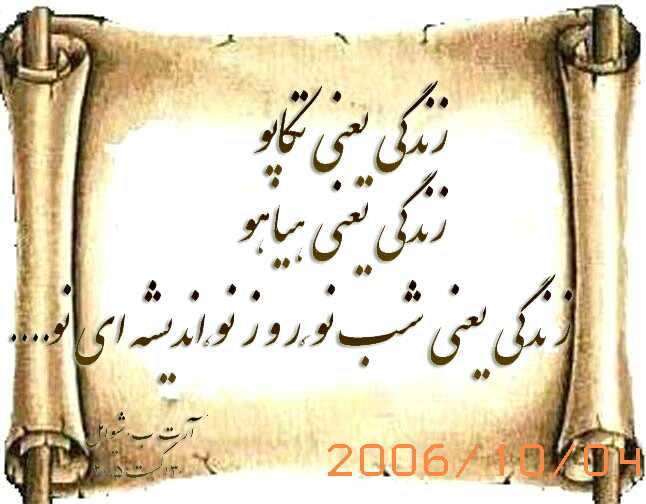 زندگی یعنی تکاپو
زندگی یعنی هیاهو
زندگی یعنی شب نو، روز نو، اندیشه ای نو....
آرت ب
2006/10/04